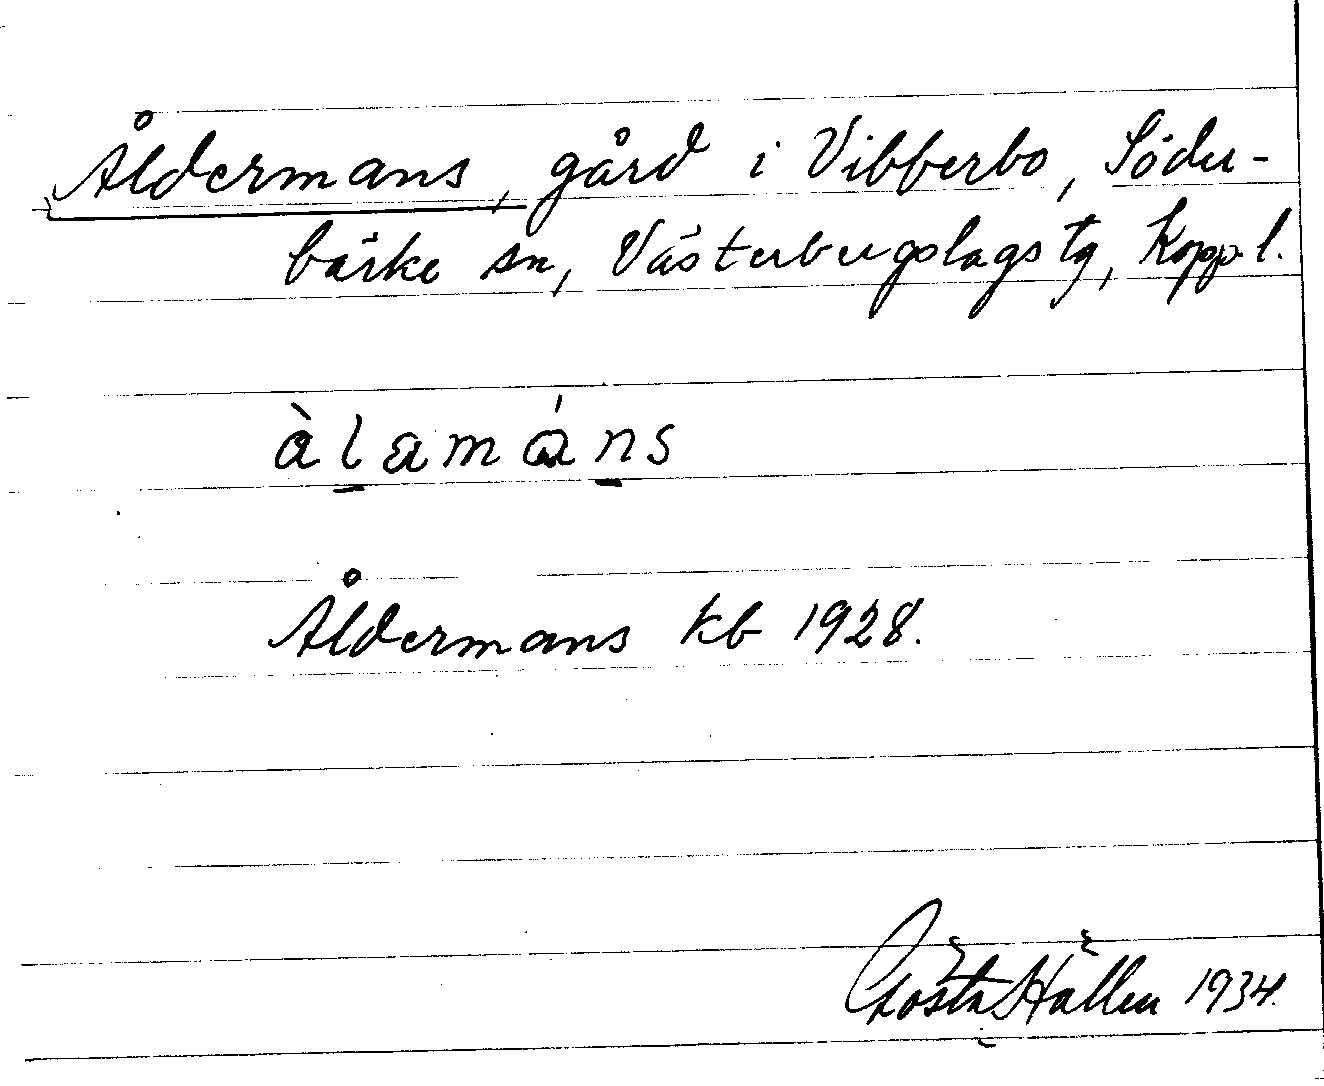 Åldermans, gård i Vibberbo, Söder-
bärke sn, Västerbergslags tg, Kopp. l.
àlamáns
Åldermans kb 1928.
Gösta Hällen 1934.